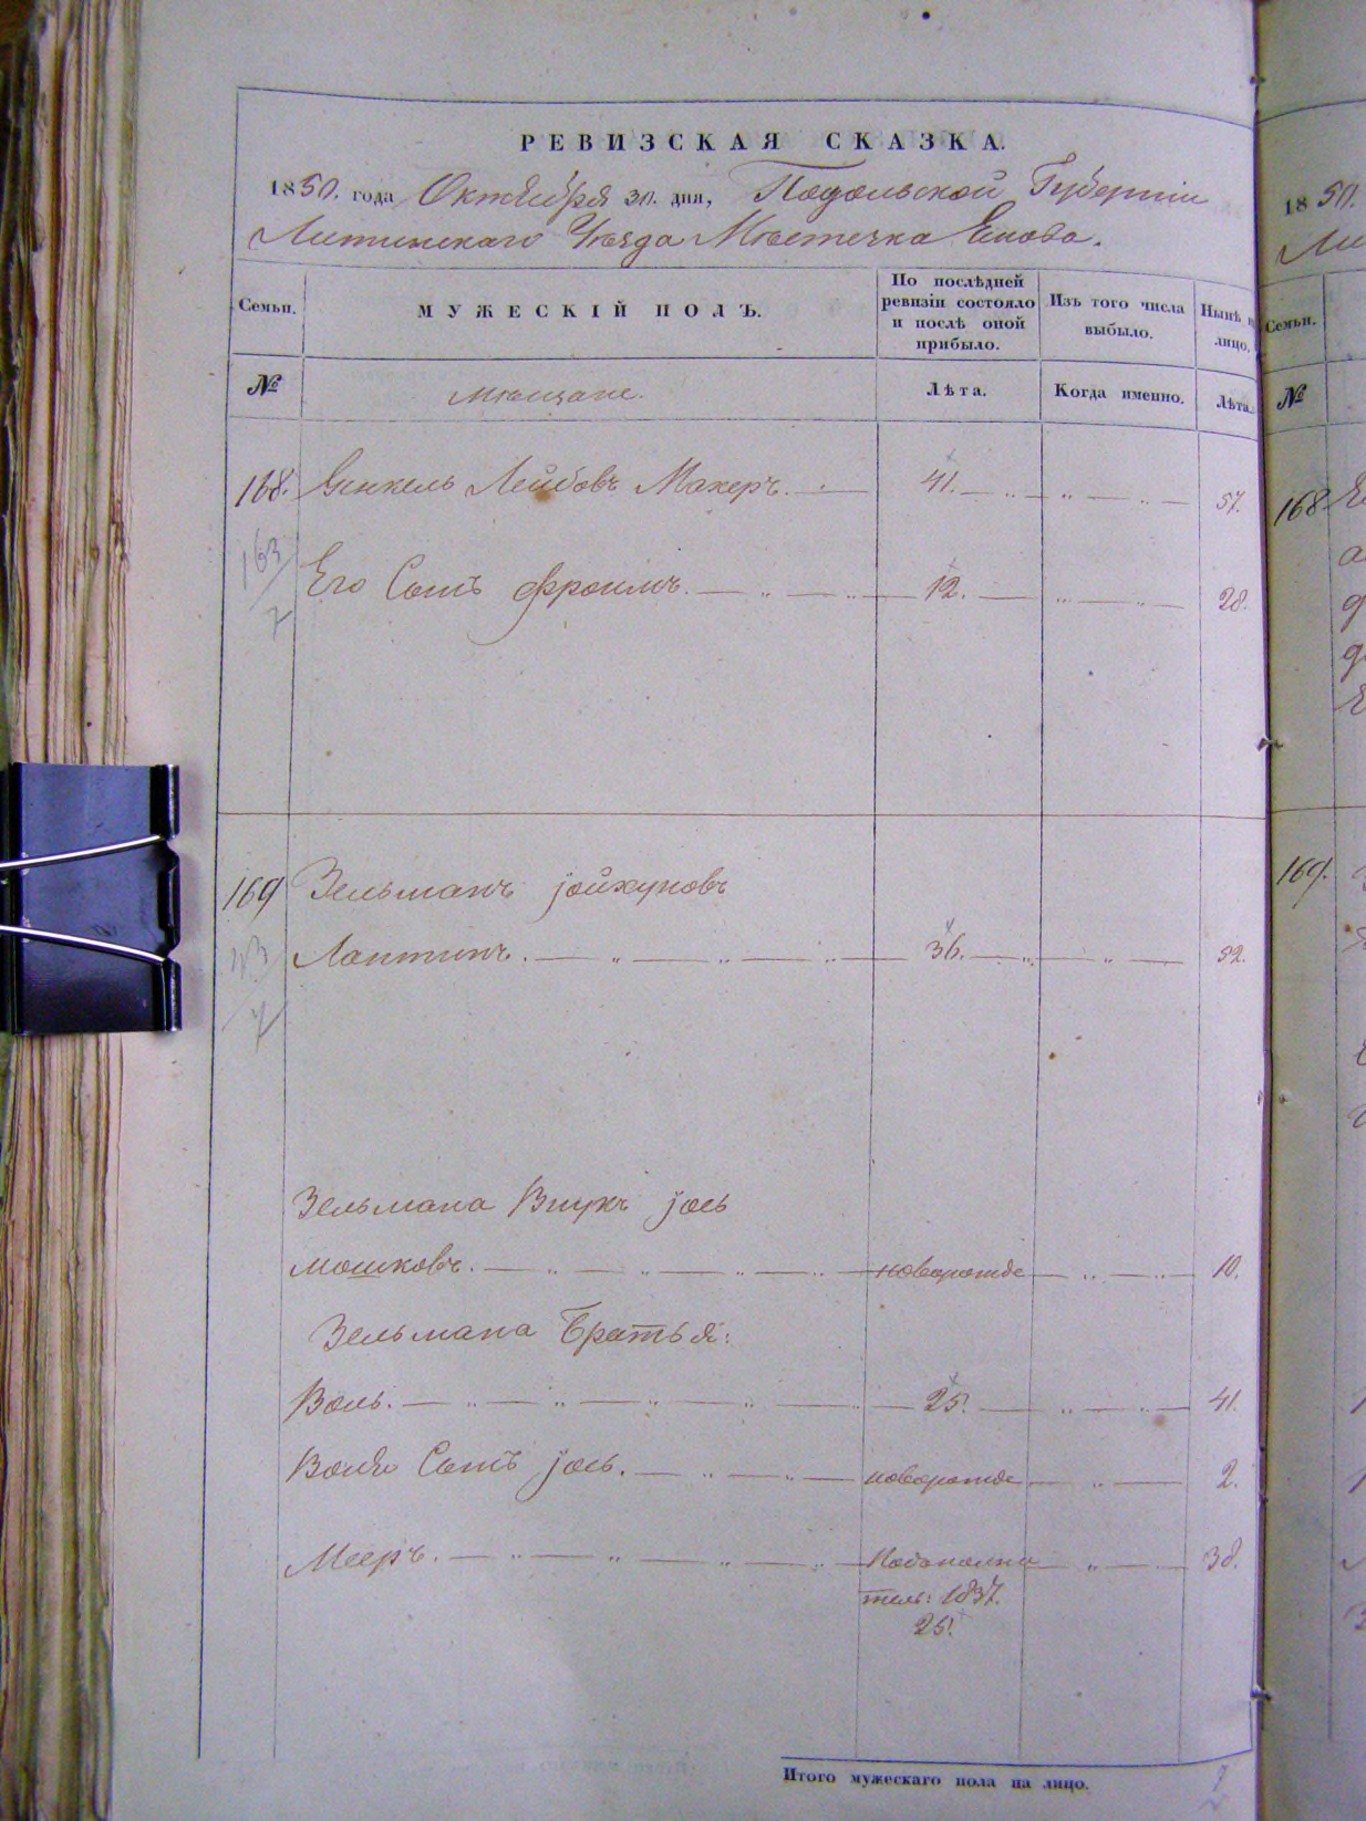 РЕВИЗСКАЯ СКАЗКА.
1850. года Октября 30. дня, Подольской Губерніи
Литинскаго Уѣзда Мѣстечка Янова.
Семьи.
МУЖЕСКІЙ ПОЛЪ.
По послѣдней ревизіи состояло и послѣ оной прибыло.
Изъ того числа выбыло.
Нынѣ на лицо.
№
Мѣщане.
Лѣта.
Когда именно.
Лѣта.
168. Генкель Лейбовъ Махеръ. 41. 57.
163/7
Его Сынъ Фроимъ. 12. 28.
169 Зельманъ Іойхуновъ
Лаптинъ. 36. 52.
Зельмана Внукъ Іось
Мошковъ. новорожде 10.
Зельмана Братья:
Воль. 25. 41.
Сынъ Іось. новорожде 2.
Мееръ. Подополни 38.
тель: 1837.
25.
Итого мужескаго пола на лицо.
1850.
Семьи.
№
168
169.